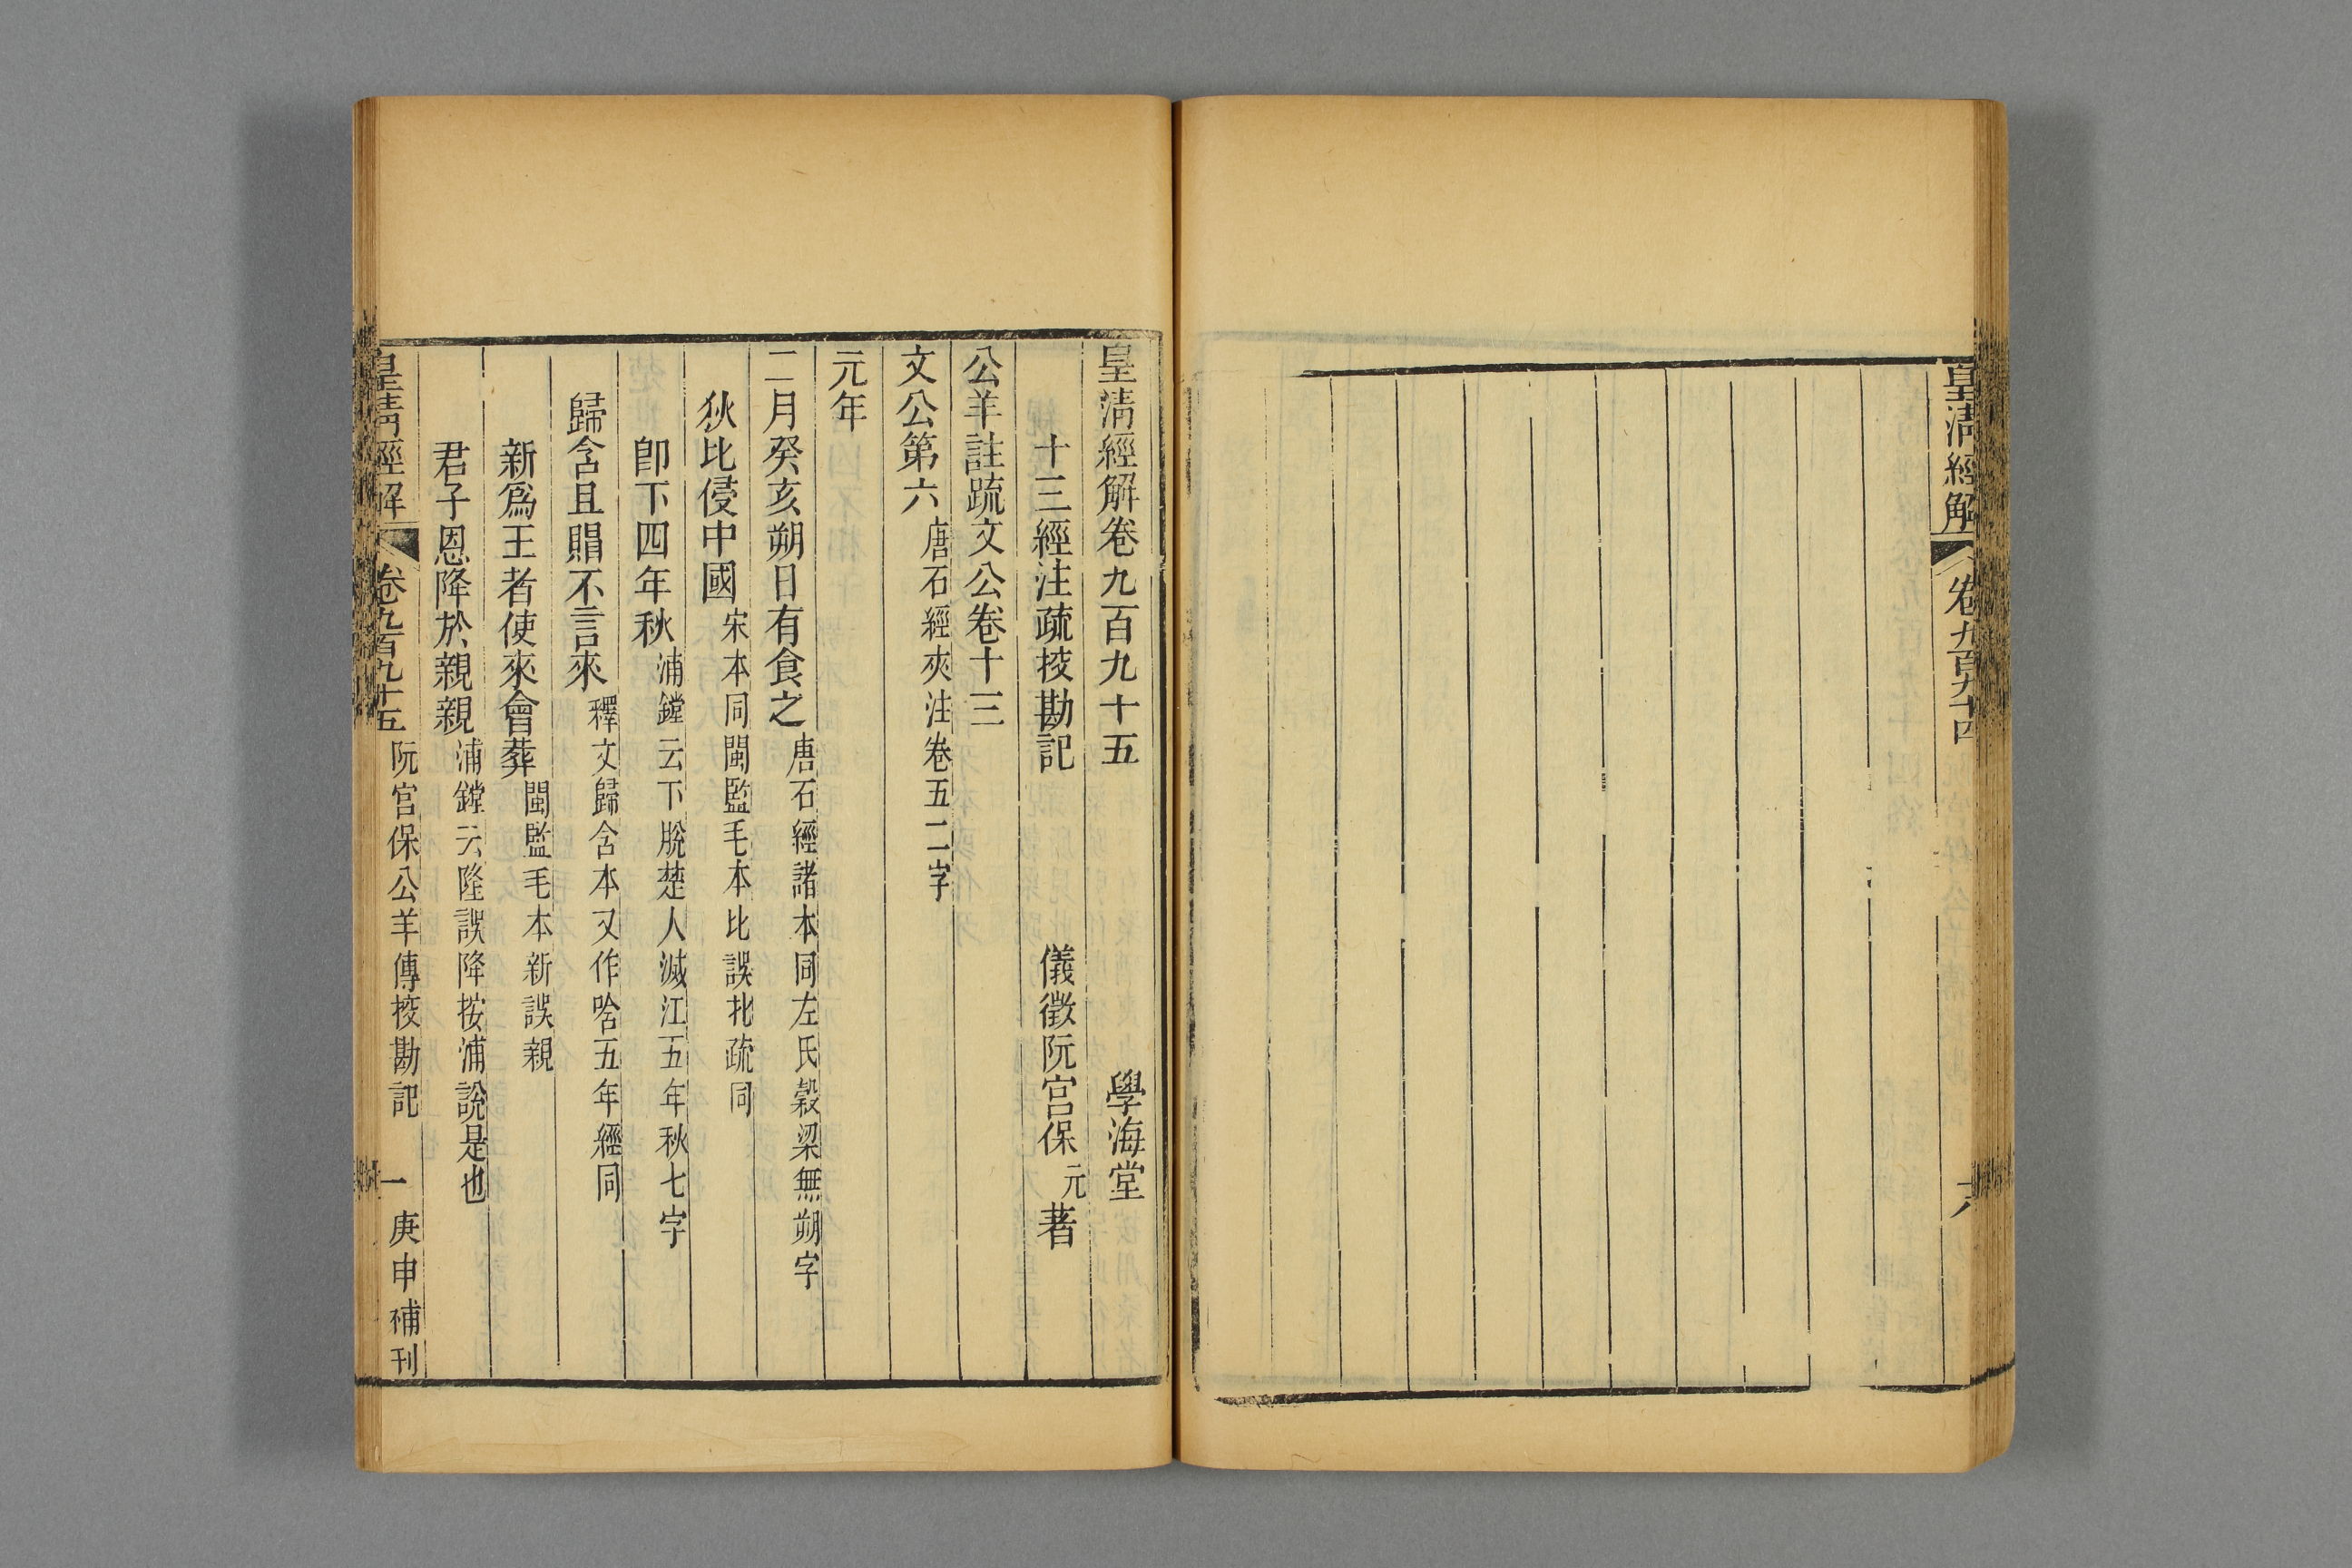 皇清經解
卷九百九十四
六
皇清經解卷九百九十五 學海堂
十三經注疏挍勘記 儀徵阮宮保元著
公羊註疏文公卷十三
文公第六唐石經夾注卷五二字
元年
二月癸亥朔日有食之唐石經諸本同左氏榖梁無朔字
狄比侵中國宋本同閩監毛本比誤北疏同
卽下四年秋浦鏜云下脫楚人滅江五年秋七字
歸含且賵不言來釋文歸含本又作唅五年經同
新爲王者使來會葬閩監毛本新誤親
君子恩降於親親浦鏜云隆誤降按浦說是也
皇清經解
卷九百九十五
阮宮保公羊傳挍勘記
一
庚申補刊